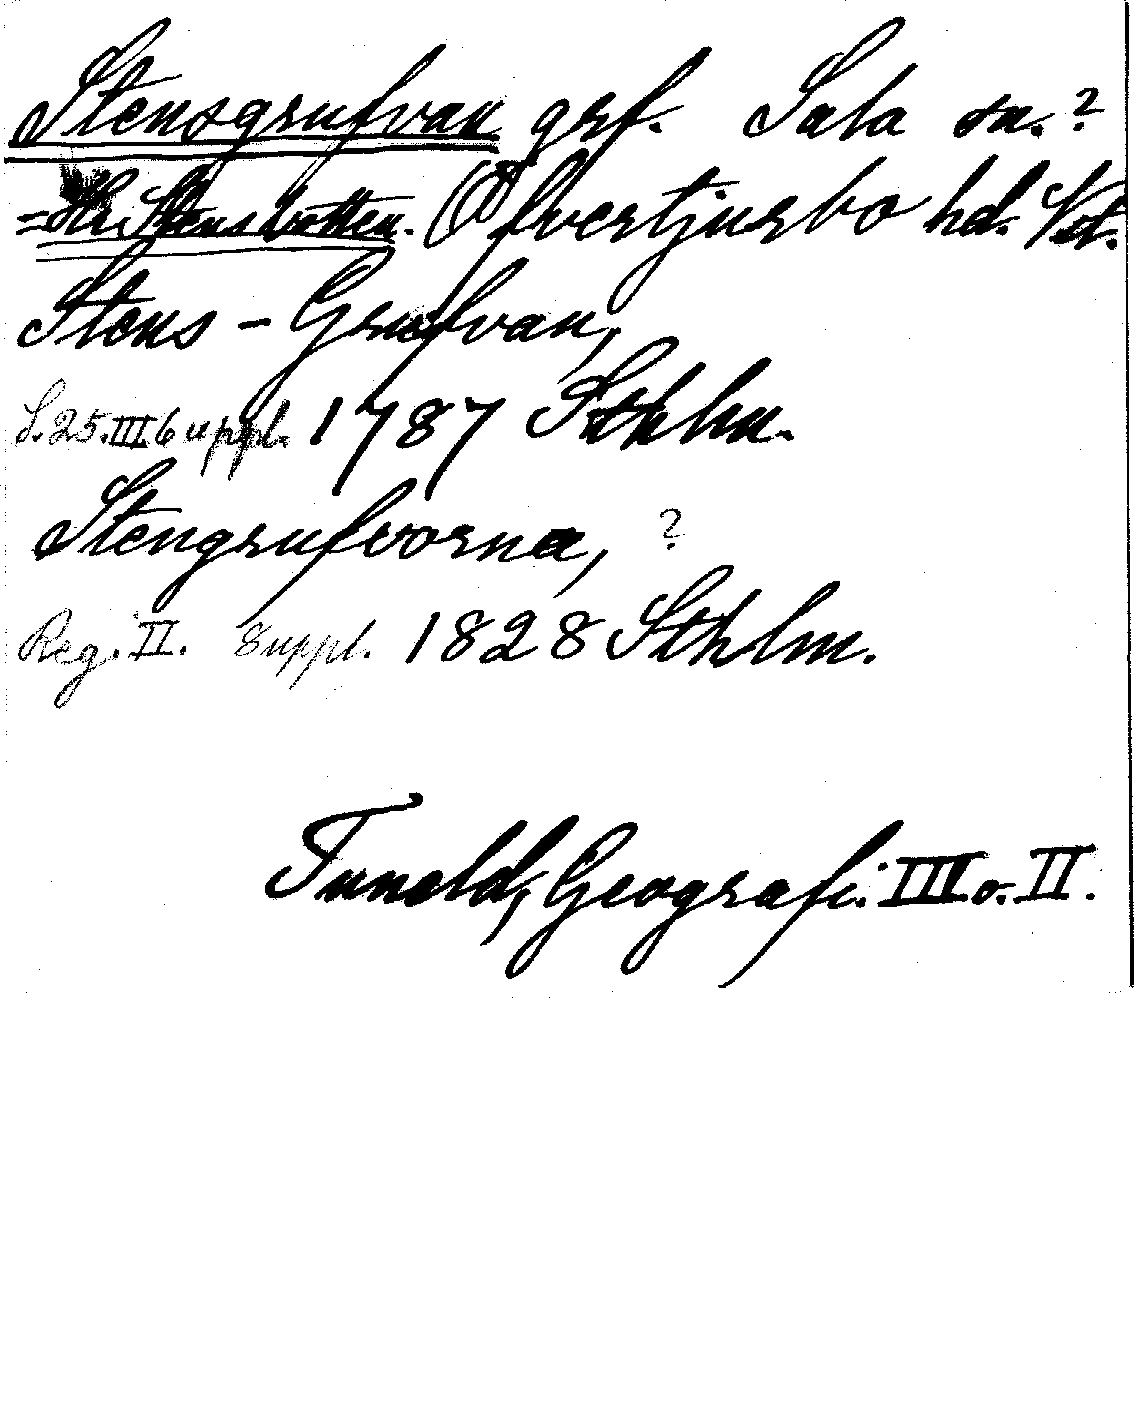 Stensgrufvan grf. Sala sn.?
= Hr Stensbotten. Öfvertjurbo hd. Vstm.
Stens - Grufvan,
S. 25. III. 6 uppl. 1787 Sthlm.
Stengrufvorna, ?
Reg. II. 8 uppl. 1828 Sthlm.
Tuneld, Geografi. III o. II.